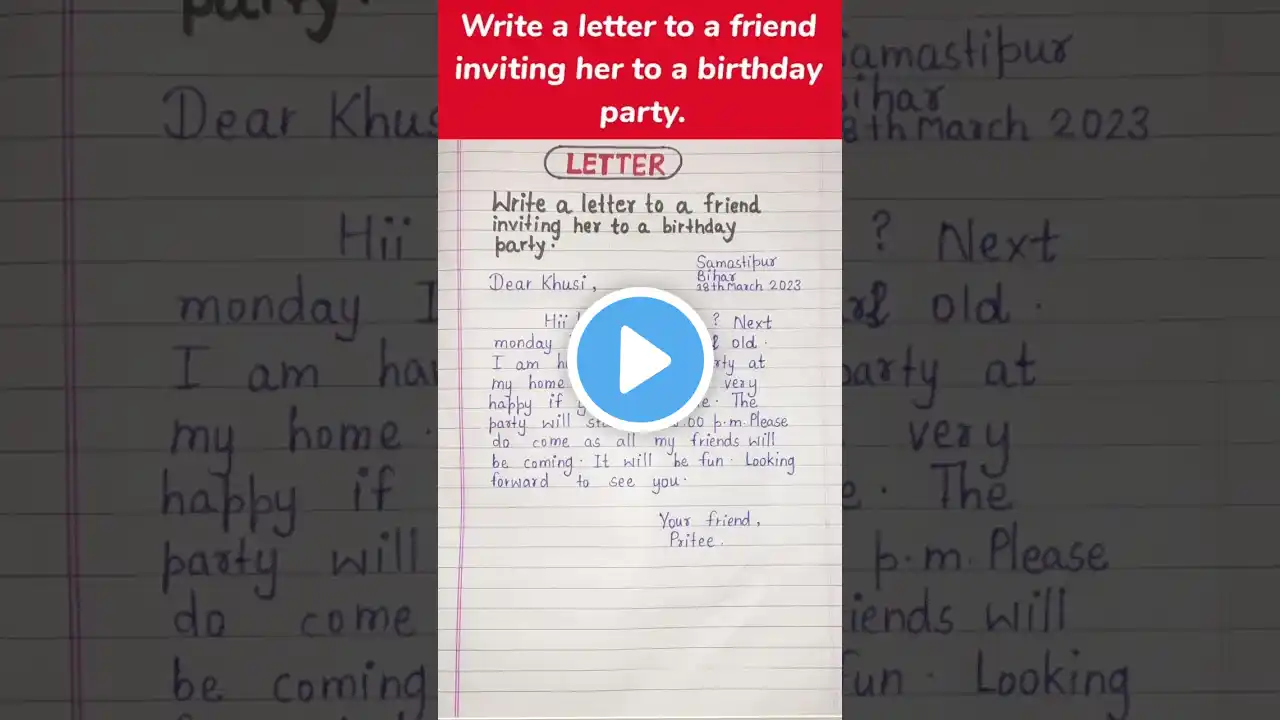 Write a letter to a friend
inviting her to a birthday
party.
LETTER
Write a letter to a friend
inviting her to a birthday
party.
Samastipur
Bihar
28th March 2023
Dear Khusi,
Hii ? Next
monday old.
I am party at
my home very
happy if The
party will p.m. Please
do come as all my friends will
be coming. It will be fun. Looking
forward to see you.
Your friend,
Pritee.